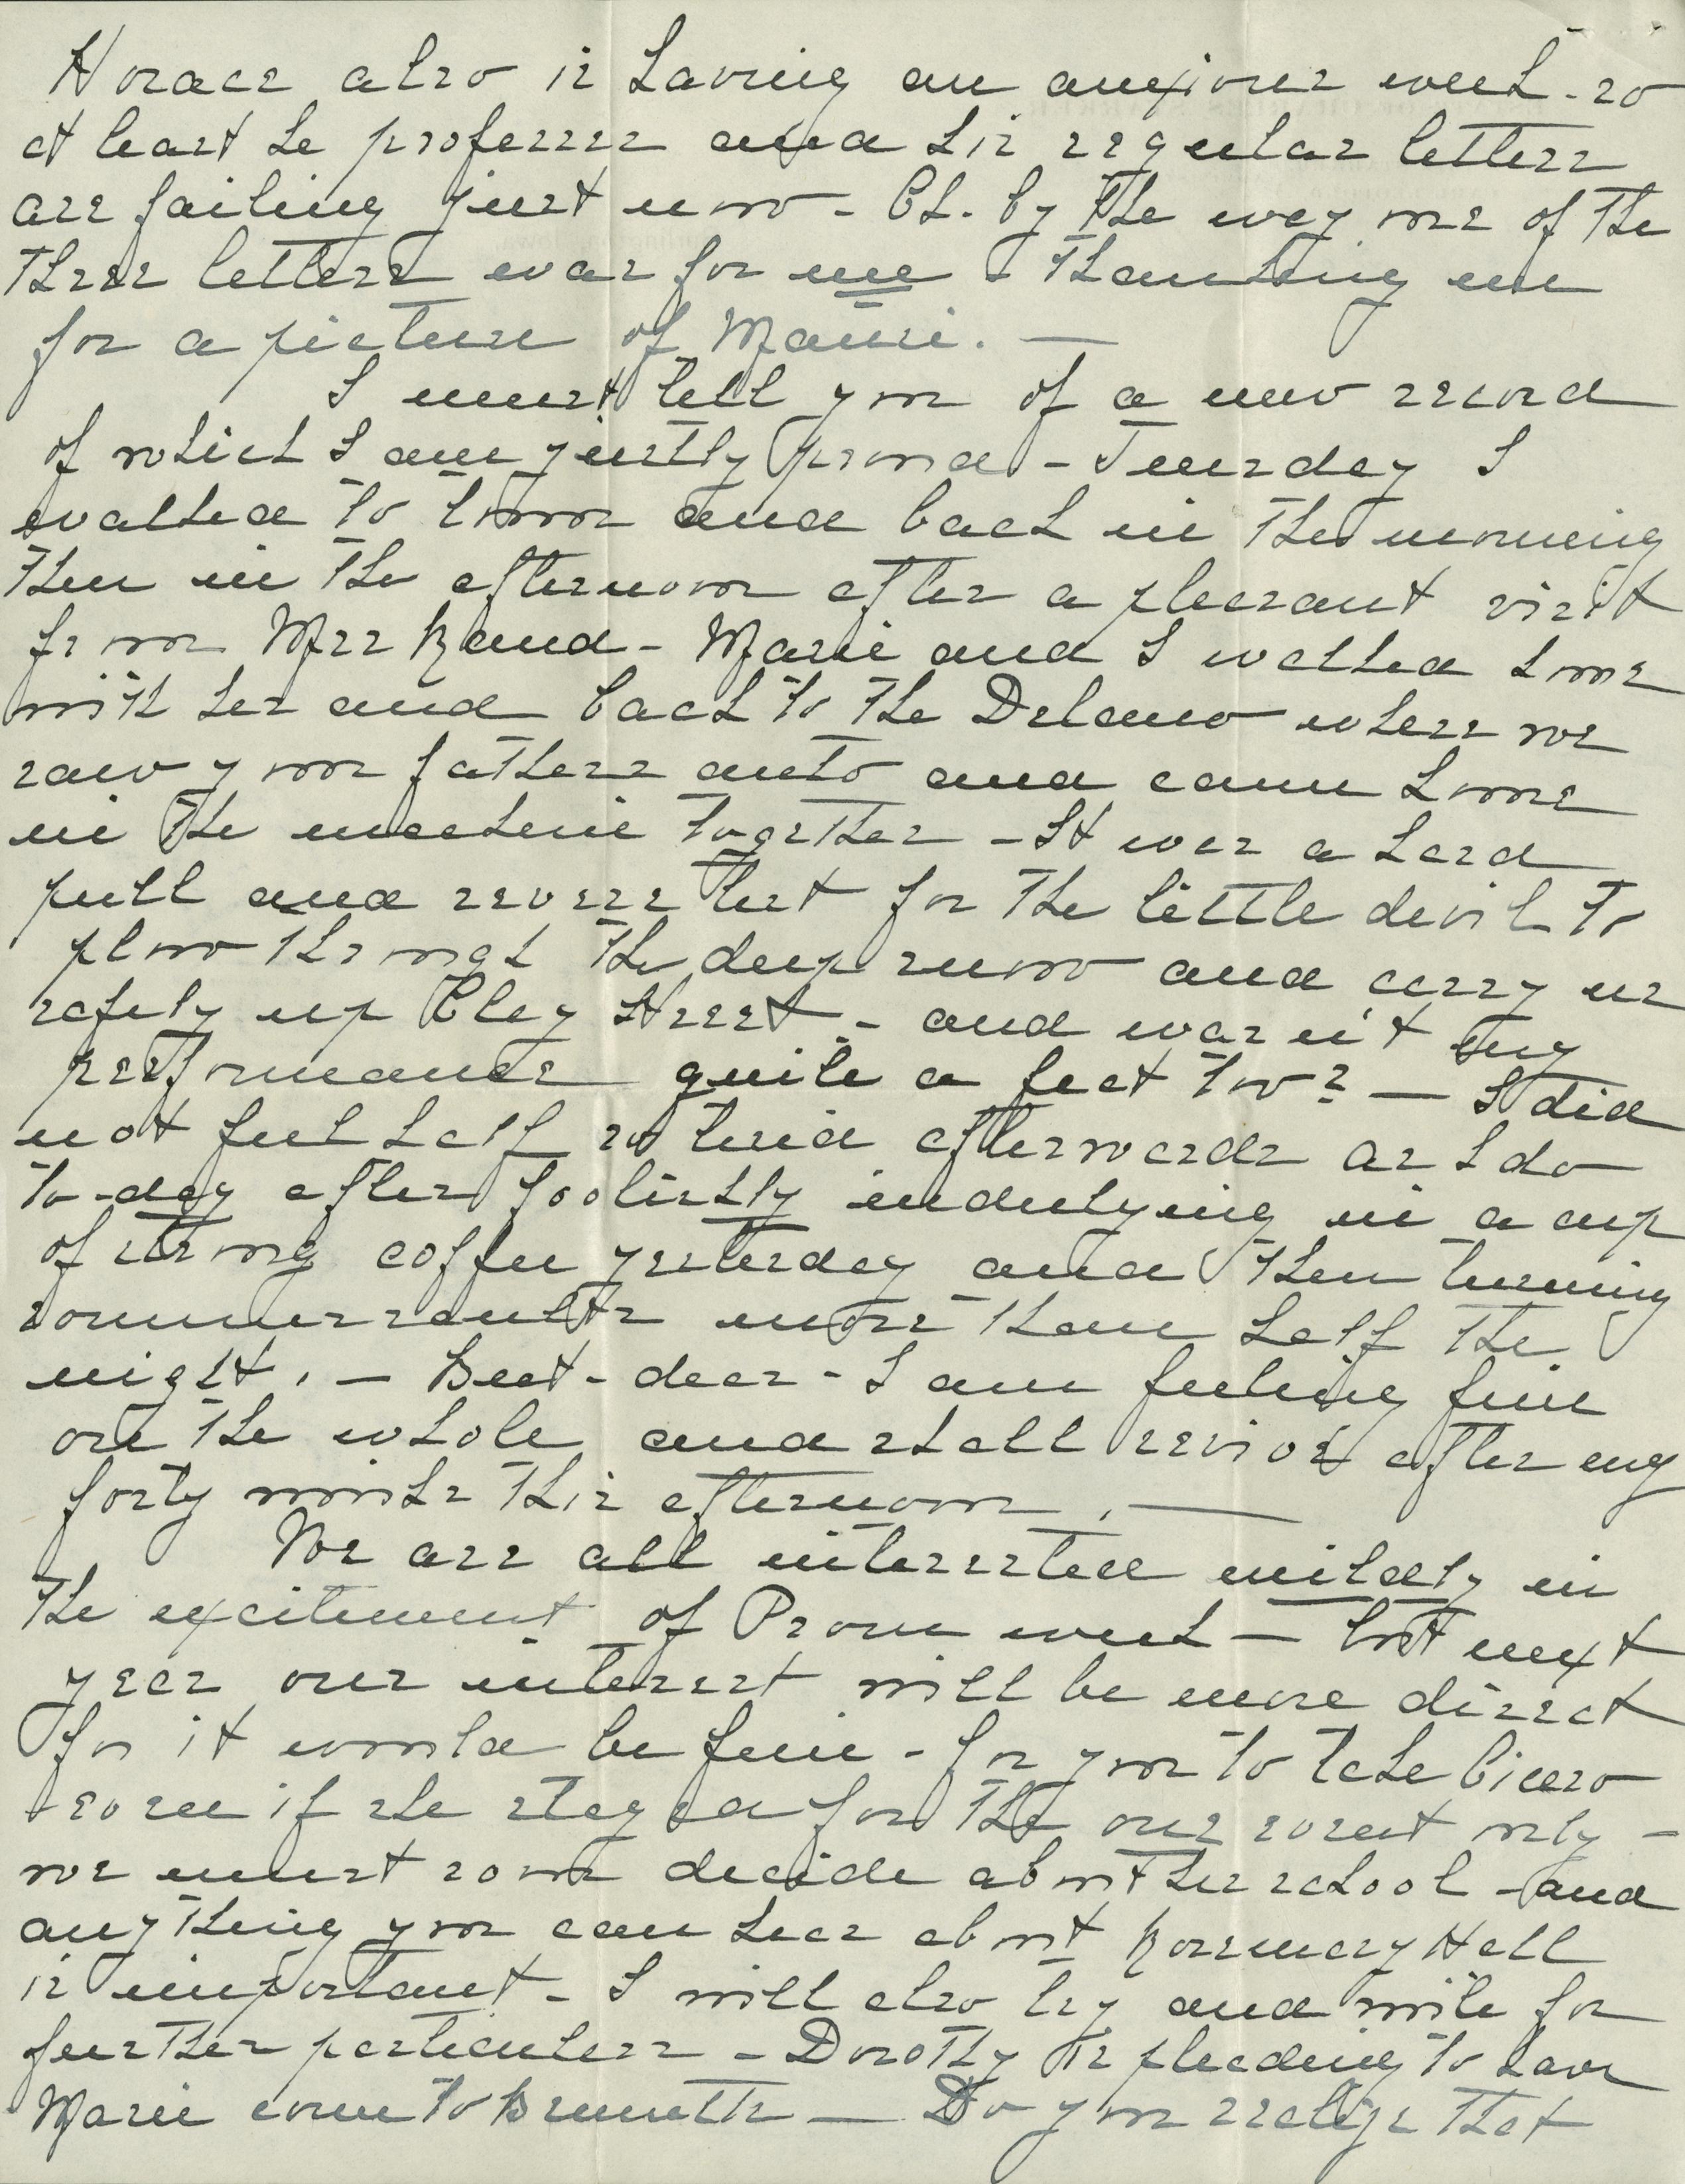 Horace also is having an anxious week - so
at least he professes and his regular letters
are failing just now - Oh. by the way one of the
three letters was for me - thanking me
for a picture of Marie. —
I must tell you of a new record
of which I am justly proud - Tuesday I
walked to town and back in the morning
then in the afternoon after a pleasant visit
from Mrs Rand - Marie and I walked home
with her and back to the Delano where we
saw your fathers auto and came home
in the machine together - It was a hard
pull and severe test for the little devil to
plow through the deep snow and carry us
safely up Clay Street - and wasn't my
performance quite a feat too? — I did
not feel half so tired afterwards as I do
to-day after foolishly indulging in a cup
of strong coffee yesterday and then turning
sommersaults more than half the
night. — But - dear - I am feeling fine
on the whole and shall revive after my
forty winks this afternoon. —
We are all interested mildly in
the excitement of Prom week — but next
year our interest will be more direct
for it would be fine - for you to take Cicero
- even if she stayed for the one event only -
we must soon decide about her school - and
anything you can hear about Rosemary Hall
is important - I will also try and write for
further particulars - Dorothy is pleading to have
Marie come to Bennetts — Do you realize that